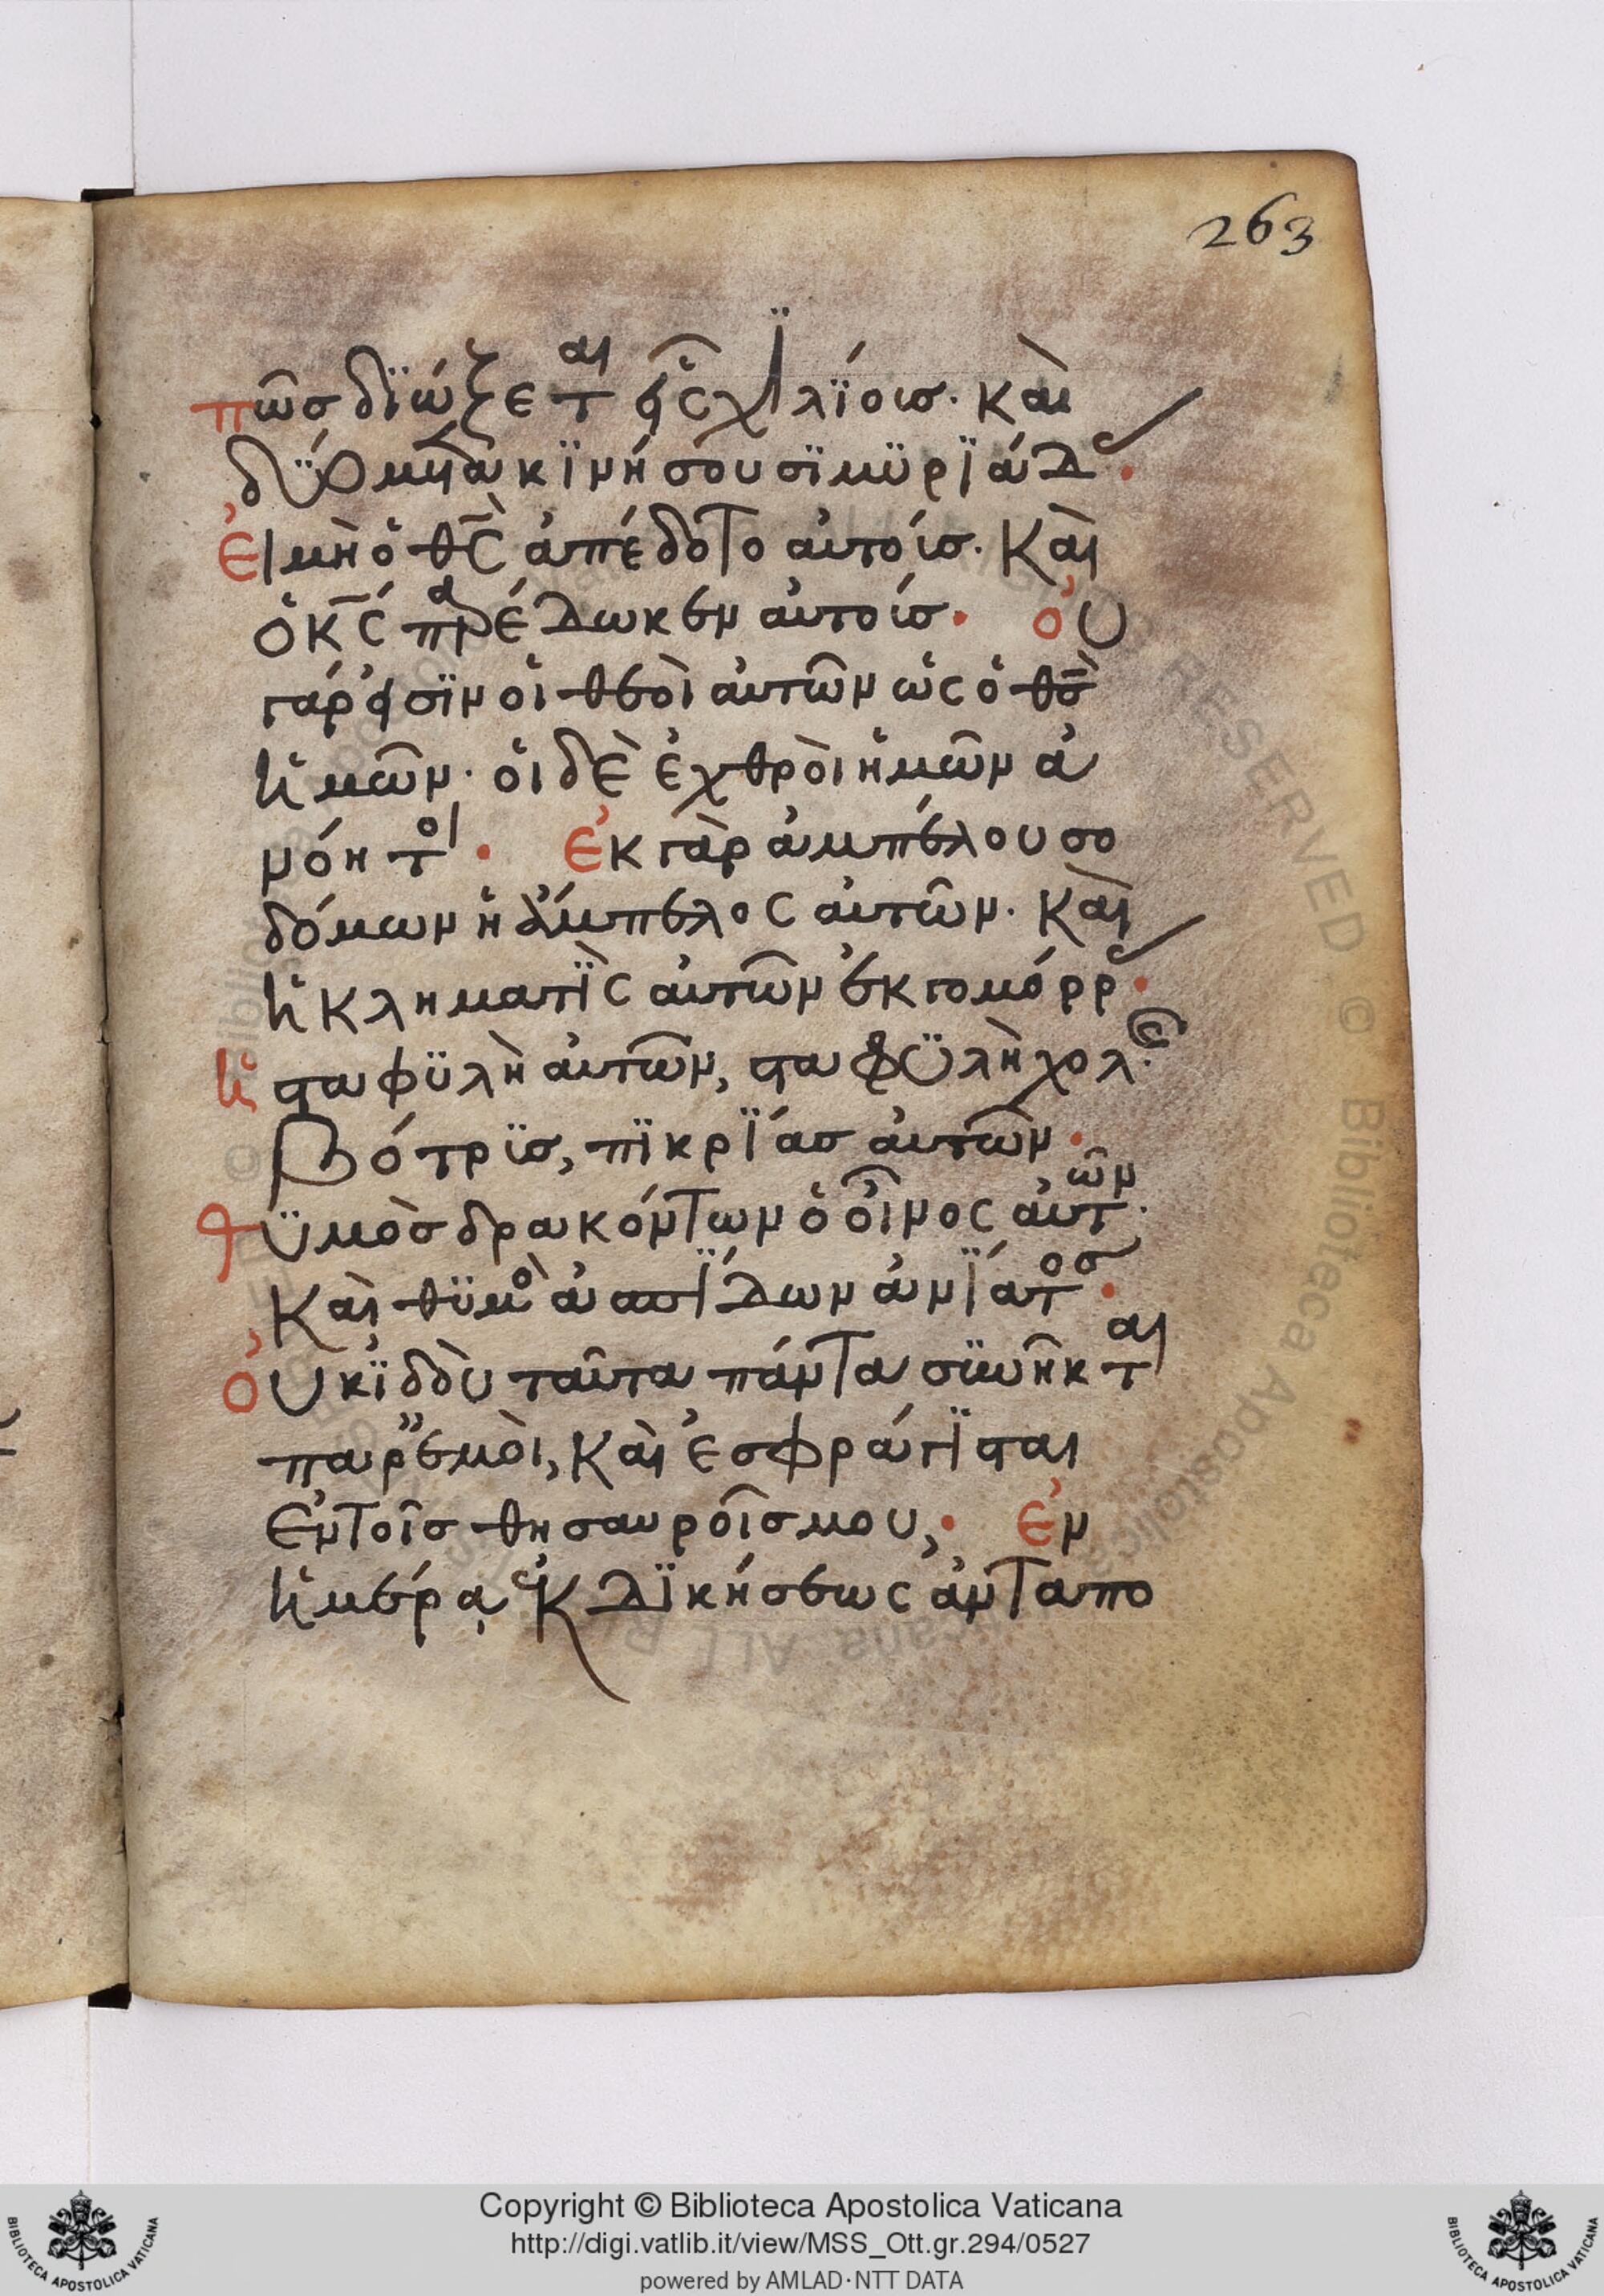 263
πῶσ διώξετ αι εἷς χιλίοισ. καὶ
δύο μετακινήσουσι μυριάδ
Εἰ μὴ ὁ θς ἀπέδοτο αὐτοίσ. Καὶ
ὁ κς πρέδωκεν αὐτοίσ. οὐ
γάρ εἰσιν οἱ θεοὶ αὐτῶν ὡς ὁ θσ
ἡμῶν. οἱ δὲ ἐχθροὶ ἡμῶν ἀ
νόητοι. Ἐκ γὰρ ἀμπέλου σο
δόμων ἡ ἄμπελος αὐτῶν. Καὶ
ἡ κληματὶς αὐτῶν ἐκ γομόρρ
ἡ σταφυλὴ αὐτῶν, σταφυλὴ χολῆς.
Βότρυσ, πικρίασ αὐτῶν.
Θυμὸσ δρακόντων ὁ οἶνος αὐτῶν.
Καὶ θυμὸ ἀσπίδων ἀνίατοσ.
Οὐκ ἰδοὺ ταῦτα πάντα συνῆκται
παρ' ἐμοὶ, Καὶ ἐσφράγισται
Ἐν τοῖσ θησαυροῖσ μου,. Ἐν
ἡμέρᾳ ἐκδικήσεως ἀνταπο
Copyright © Biblioteca Apostolica Vaticana
http://digi.vatlib.it/view/MSS_Ott.gr.294/0527
powered by AMLAD·NTT DATA
BIBLIOTECA APOSTOLICA VATICANA
BIBLIOTECA APOSTOLICA VATICANA